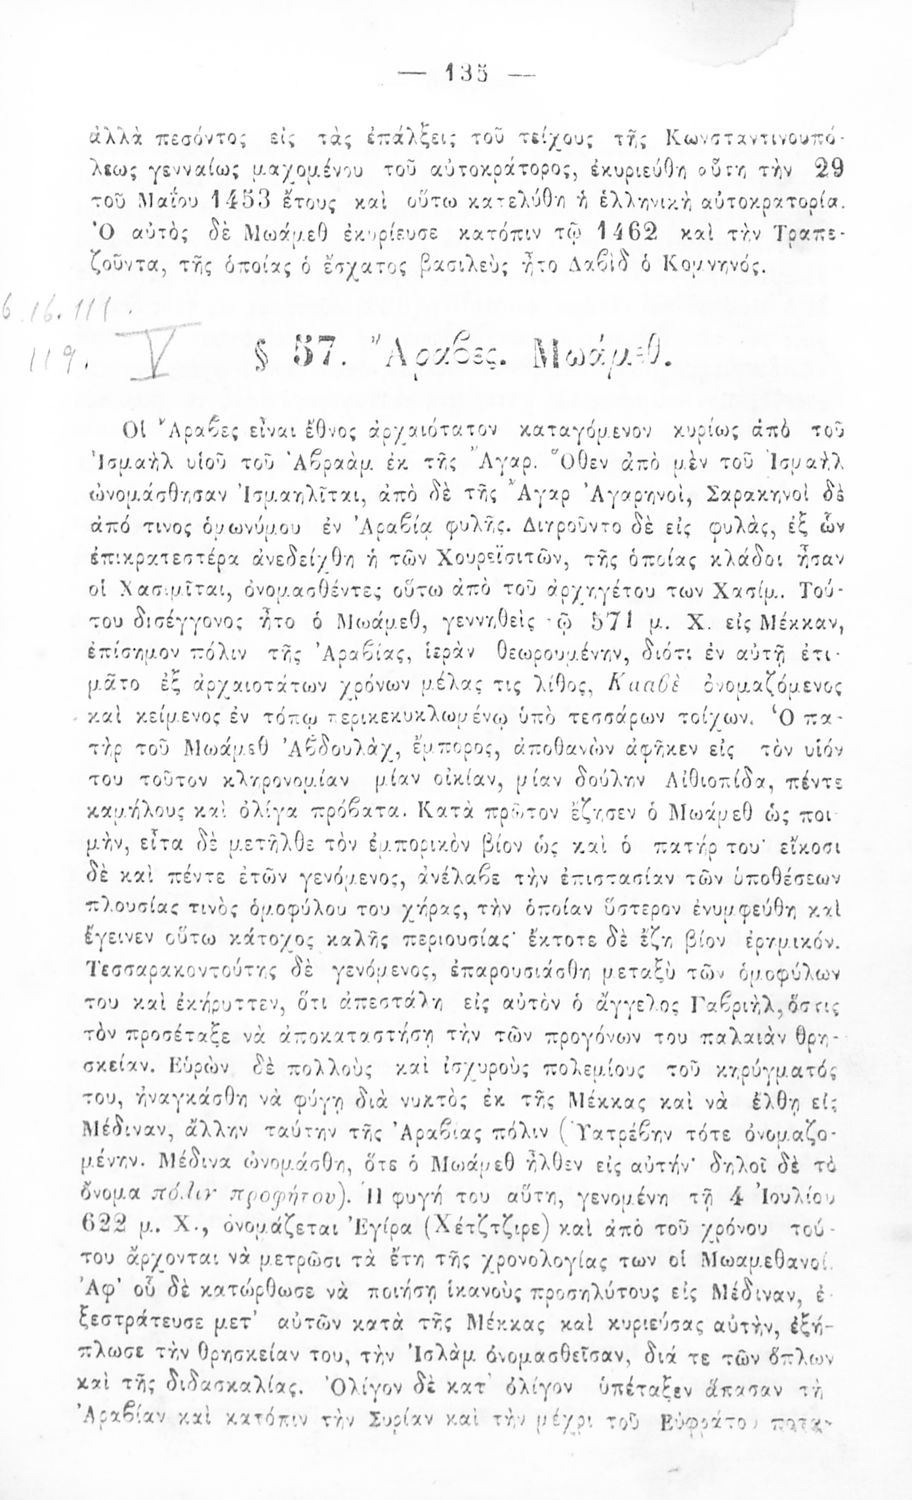 — 135 —
ἀλλὰ πεσόντος εἰς τὰς ἐπάλξεις τοῦ τείχους τῆς Κωνσταντινουπό-
λεως γενναίως μαχομένου τοῦ αὐτοκράτορος, ἐκυριεύθη αὕτη τὴν 29
τοῦ Μαΐου 1453 ἔτους καὶ οὕτω κατελύθη ἡ ἑλληνικὴ αὐτοκρατορία.
Ὁ αὐτὸς δὲ Μωάμεθ ἐκυρίευσε κατόπιν τῷ 1462 καὶ τὴν Τραπε-
ζοῦντα, τῆς ὁποίας ὁ ἔσχατος βασιλεὺς ἦτο Δαβὶδ ὁ Κομνηνός.
6 16. 111.
119. V
§ 57. Ἄραβες. Μωάμεθ.
Οἱ Ἄραβες εἶναι ἔθνος ἀρχαιότατον καταγόμενον κυρίως ἀπὸ τοῦ
Ἰσμαὴλ υἱοῦ τοῦ Ἀβραὰμ ἐκ τῆς Ἄγαρ. Ὅθεν ἀπὸ μὲν τοῦ Ἰσμαὴλ
ὠνομάσθησαν Ἰσμαηλῖται, ἀπὸ δὲ τῆς Ἄγαρ Ἀγαρηνοὶ, Σαρακηνοὶ δὲ
ἀπό τινος ὁμωνύμου ἐν Ἀραβίᾳ φυλῆς. Διῃροῦντο δὲ εἰς φυλὰς, ἐξ ὧν
ἐπικρατεστέρα ἀνεδείχθη ἡ τῶν Χουρεϊσιτῶν, τῆς ὁποίας κλάδοι ἦσαν
οἱ Χασιμῖται, ὀνομασθέντες οὕτω ἀπὸ τοῦ ἀρχηγέτου των Χασίμ. Τού-
του δισέγγονος ἦτο ὁ Μωάμεθ, γεννηθεὶς τῷ 571 μ. Χ. εἰς Μέκκαν,
ἐπίσημον πόλιν τῆς Ἀραβίας, ἱερὰν θεωρουμένην, διότι ἐν αὐτῇ ἐτι-
μᾶτο ἐξ ἀρχαιοτάτων χρόνων μέλας τις λίθος, Κααβὲ ὀνομαζόμενος
καὶ κείμενος ἐν τόπῳ περικεκυκλωμένῳ ὑπὸ τεσσάρων τοίχων. Ὁ πα-
τὴρ τοῦ Μωάμεθ Ἀβδουλὰχ, ἔμπορος, ἀποθανὼν ἀφῆκεν εἰς τὸν υἱόν
του τοῦτον κληρονομίαν μίαν οἰκίαν, μίαν δούλην Αἰθιοπίδα, πέντε
καμήλους καὶ ὀλίγα πρόβατα. Κατὰ πρῶτον ἔζησεν ὁ Μωάμεθ ὡς ποι-
μὴν, εἶτα δὲ μετῆλθε τὸν ἐμπορικὸν βίον ὡς καὶ ὁ πατήρ του· εἴκοσι
δὲ καὶ πέντε ἐτῶν γενόμενος, ἀνέλαβε τὴν ἐπιστασίαν τῶν ὑποθέσεων
πλουσίας τινὸς ὁμοφύλου του χήρας, τὴν ὁποίαν ὕστερον ἐνυμφεύθη καὶ
ἔγεινεν οὕτω κάτοχος καλῆς περιουσίας· ἔκτοτε δὲ ἔζη βίον ἐρημικόν.
Τεσσαρακοντούτης δὲ γενόμενος, ἐπαρουσιάσθη μεταξὺ τῶν ὁμοφύλων
του καὶ ἐκήρυττεν, ὅτι ἀπεστάλη εἰς αὐτὸν ὁ ἄγγελος Γαβριὴλ, ὅστις
τὸν προσέταξε νὰ ἀποκαταστήσῃ τὴν τῶν προγόνων του παλαιὰν θρη-
σκείαν. Εὑρὼν δὲ πολλοὺς καὶ ἰσχυροὺς πολεμίους τοῦ κηρύγματός
του, ἠναγκάσθη νὰ φύγῃ διὰ νυκτὸς ἐκ τῆς Μέκκας καὶ νὰ ἔλθῃ εἰς
Μέδιναν, ἄλλην ταύτην τῆς Ἀραβίας πόλιν (Ὑατρέβην τότε ὀνομαζο-
μένην. Μέδινα ὠνομάσθη, ὅτε ὁ Μωάμεθ ἦλθεν εἰς αὐτήν· δηλοῖ δὲ τὸ
ὄνομα πόλιν προφήτου). Ἡ φυγή του αὕτη, γενομένη τῇ 4 Ἰουλίου
622 μ. Χ., ὀνομάζεται Ἐγίρα (Χέτζτζιρε) καὶ ἀπὸ τοῦ χρόνου τού-
του ἄρχονται νὰ μετρῶσι τὰ ἔτη τῆς χρονολογίας των οἱ Μωαμεθανοί.
Ἀφ' οὗ δὲ κατώρθωσε νὰ ποιήσῃ ἱκανοὺς προσηλύτους εἰς Μέδιναν, ἐ-
ξεστράτευσε μετ' αὐτῶν κατὰ τῆς Μέκκας καὶ κυριεύσας αὐτὴν, ἐξή-
πλωσε τὴν θρησκείαν του, τὴν Ἰσλὰμ ὀνομασθεῖσαν, διά τε τῶν ὅπλων
καὶ τῆς διδασκαλίας. Ὀλίγον δὲ κατ' ὀλίγον ὑπέταξεν ἅπασαν τὴν
Ἀραβίαν καὶ κατόπιν τὴν Συρίαν καὶ τὴν μέχρι τοῦ Εὐφράτου ποτα-